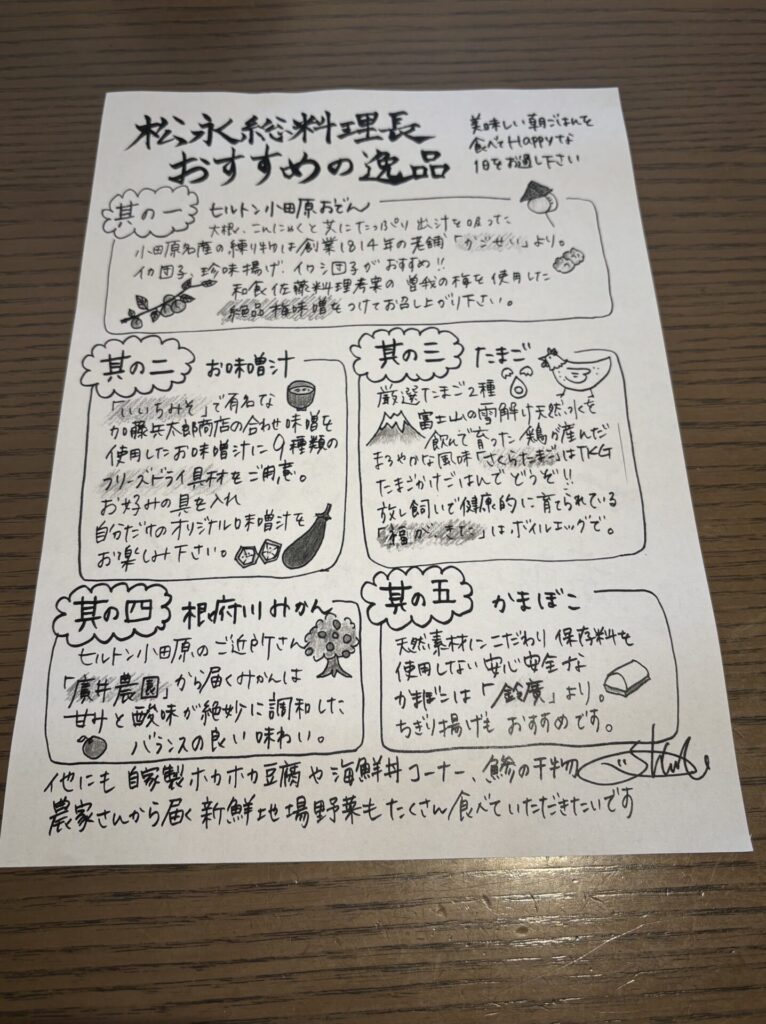 松永総料理長
おすすめの逸品
美味しい朝ごはんを
食べてHappyな
1日をお過し下さい
其の一 ヒルトン小田原おでん
大根、こんにゃくと共にたっぷり出汁を吸った
小田原名産の練り物は創業1814年の老舗「かごせい」より。
イカ団子、珍味揚げ、イワシ団子がおすすめ!!
和食佐藤料理長考案の曽我の梅を使用した
絶品梅味噌をつけてお召し上がり下さい。
其の二 お味噌汁
「いいちみそ」で有名な
加藤兵太郎商店の合わせ味噌を
使用したお味噌汁に9種類の
フリーズドライ具材をご用意。
お好みの具を入れ
自分だけのオリジナル味噌汁を
お楽しみ下さい。
其の三 たまご
厳選たまご2種
富士山の雪解け天然水を
飲んで育った鶏が産んだ
まろやかな風味「さくらたまご」はTKG
たまごかけごはんでどうぞ!!
放し飼いで健康的に育てられている
「福が、きた」はボイルエッグで。
其の四 根府川みかん
ヒルトン小田原のご近所さん
「廣井農園」から届くみかんは
甘みと酸味が絶妙に調和した
バランスの良い味わい。
其の五 かまぼこ
天然素材にこだわり保存料を
使用しない安心安全な
かまぼこは「鈴廣」より。
ちぎり揚げもおすすめです。
他にも自家製ホカホカ豆腐や海鮮丼コーナー、鯵の干物
農家さんから届く新鮮地場野菜もたくさん食べていただきたいです